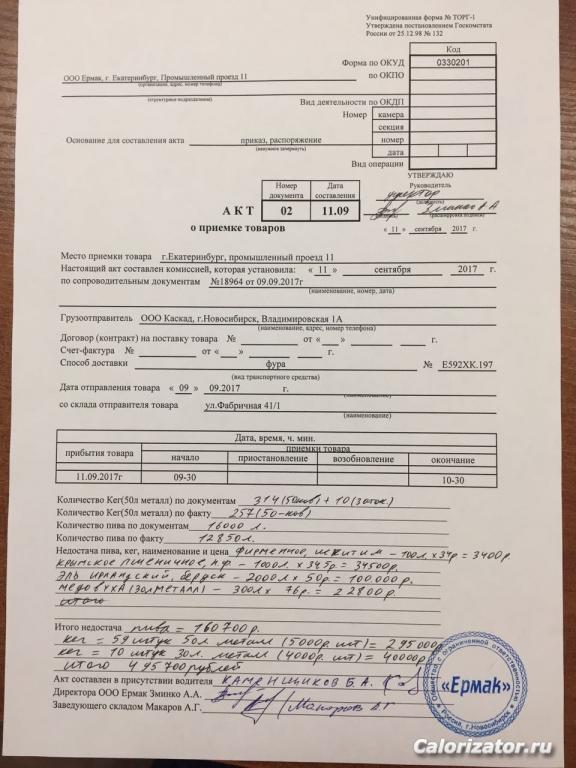 Унифицированная форма № ТОРГ-1
Утверждена постановлением Госкомстата
России от 25.12.98 № 132
Код
Форма по ОКУД 0330201
ООО Ермак, г. Екатеринбург, Промышленный проезд 11 по ОКПО
(организация, адрес, номер телефона)
(структурное подразделение)
Вид деятельности по ОКДП
Номер камера
секция
Основание для составления акта приказ, распоряжение номер
(ненужное зачеркнуть)
дата
Вид операции
УТВЕРЖДАЮ
Номер документа Дата составления Руководитель
директор
(должность)
АКТ 02 11.09 Зминко А А
(подпись) (расшифровка подписи)
о приемке товаров « 11 » сентября 2017 г.
Место приемки товара г.Екатеринбург, промышленный проезд 11
Настоящий акт составлен комиссией, которая установила: « 11 » сентября 2017 г.
по сопроводительным документам №18964 от 09.09.2017г
(наименование, номер, дата)
Грузоотправитель ООО Каскад, г.Новосибирск, Владимировская 1А
(наименование, адрес, номер телефона)
Договор (контракт) на поставку товара № от « » г.
Счет-фактура № от « » г.
Способ доставки фура № Е592ХК.197
(вид транспортного средства)
Дата отправления товара « 09 » 09.2017 г.
(наименование)
со склада отправителя товара ул.Фабричная 41/1
(наименование)
Дата, время, ч. мин.
прибытия товара приемки товара
начало приостановление возобновление окончание
11.09.2017г 09-30 10-30
Количество Кег(50л металл) по документам 314 (50ков) + 10 (30ток)
Количество Кег(50л металл) по факту 257 (50-ков)
Количество пива по документам 16000 л.
Количество пива по факту 12850 л.
Недостача пива, кег, наименование и цена Фирменное, - 100л. х 34р = 3400р.
крымское пшеничное, н.ф. - 1000л. х 345р = 34500р.
Эль ирландский, бердск - 2000л х 50р = 100.000р.
медовуха (30л металл) - 300л х 76р = 22800р.
итого
Итого недостача пива = 160700р.
кег = 59 штук 50л. металл (5000р. шт) = 295000р
кег = 10 штук 30л. металл (4000р. шт) = 40000р
итого 495700 рублей
Акт составлен в присутствии водителя Каменщиков Б.А.
Директора ООО Ермак Зминко А.А.
Заведующего складом Макаров А.Г. Макаров А Г
Общество с ограниченной ответственностью
«Ермак»
Россия, г.Новосибирск
Calorizator.ru